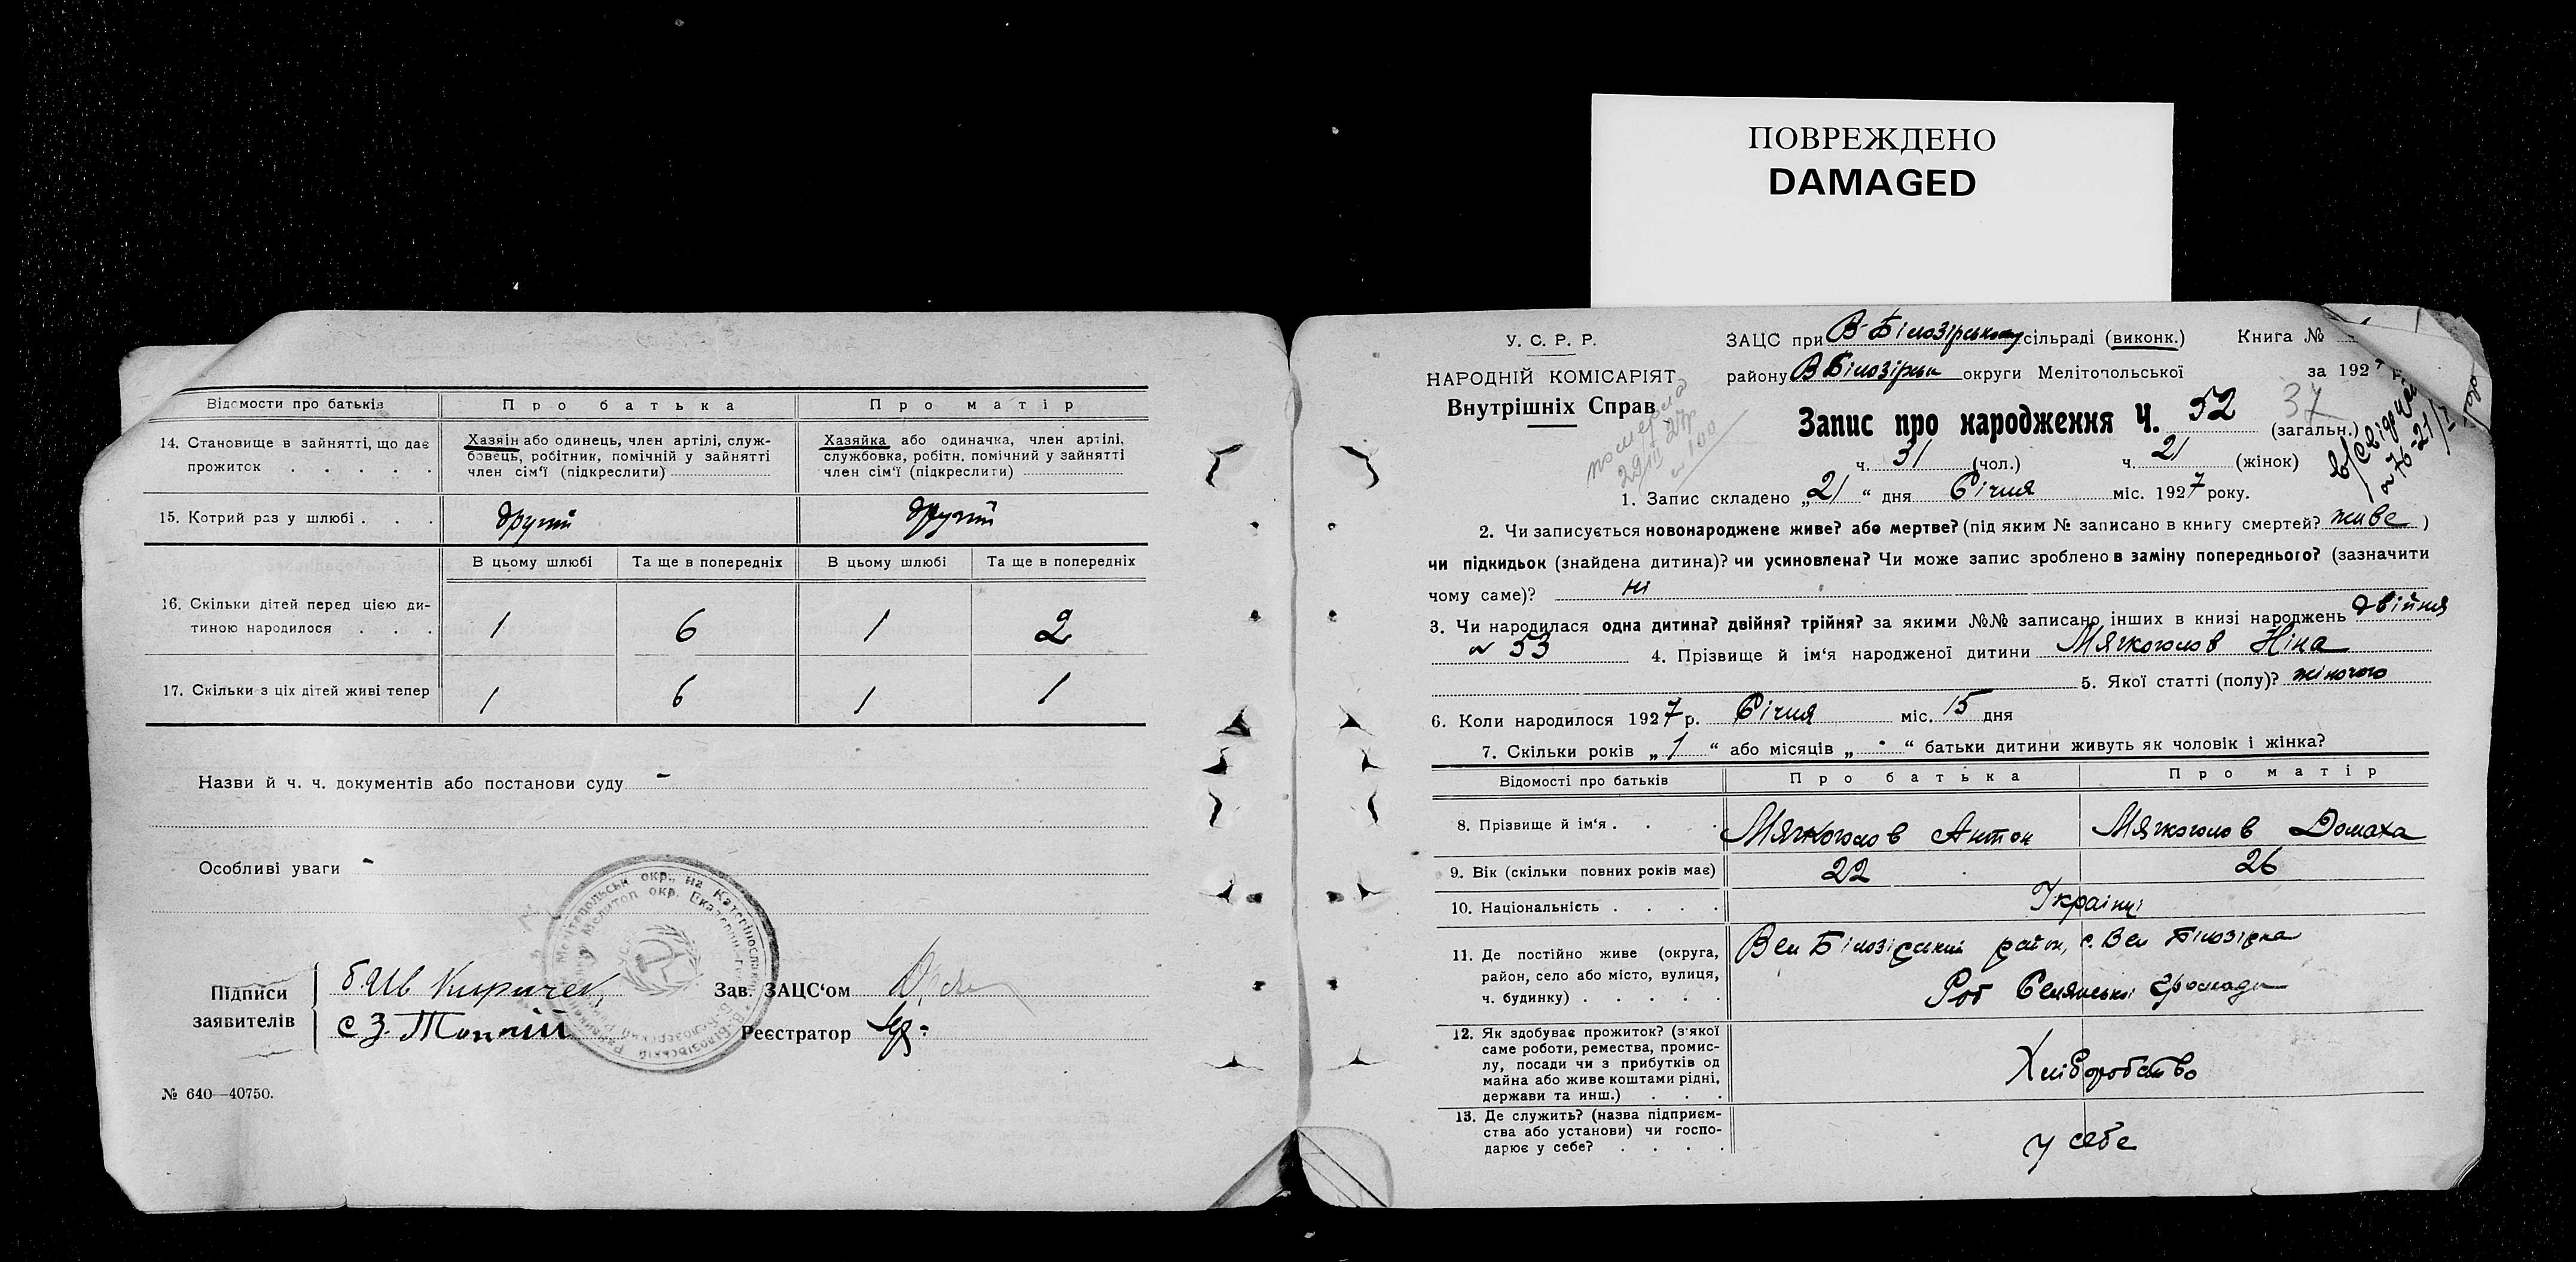 ПОВРЕЖДЕНО
DAMAGED
Відомости про батьків
Про батька
Про матір
14. Становище в зайнятті, що дає прожиток . . . . .
Хазяїн або одинець, член артілі, служ-
бовець, робітник, помічній у зайнятті
член сім'ї (підкреслити)
Хазяйка або одиначка, член артілі,
службовка, робітн. помічний у зайнятті
член сім'ї (підкреслити)
15. Котрий раз у шлюбі . . .
другий
другий
В цьому шлюбі
Та ще в попередніх
В цьому шлюбі
Та ще в попередніх
16. Скільки дітей перед цією ди-
тиною народилося . . .
1
6
1
2
17. Скільки з ціх дітей живі тепер
1
6
1
1
Назви й ч. ч. документів або постанови суду -
Особливі уваги -
Підписи
заявителів
Зав. ЗАЦС'ом
Реєстратор
№ 640—40750.
У. С. Р. Р.
НАРОДНІЙ КОМІСАРІЯТ
Внутрішніх Справ
померла
29/III 27р
№ 100
ЗАЦС при В-Білозірському сільраді (виконк.)
Книга №
району В Білозірськ округи Мелітопольської
за 1927 р.
Запис про народження Ч. 52 (загальн.)
37
ч. 31 (чол.) ч. 21 (жінок)
1. Запис складено „21“ дня Січня міс. 1927 року.
2. Чи записується новонароджене живе? або мертве? (під яким № записано в книгу смертей? живе )
чи підкидьок (знайдена дитина)? чи усиновлена? Чи може запис зроблено в заміну попереднього? (зазначити
чому саме)? ні
3. Чи народилася одна дитина? двійня? трійня? за якими №№ записано інших в книзі народжень двійня
№ 53 4. Прізвище й ім'я народженої дитини Мягкоголов Ніна
5. Якої статті (полу)? жіночого
6. Коли народилося 1927 р. Січня міс. 15 дня
7. Скільки років „1“ або місяців „-“ батьки дитини живуть як чоловік і жінка?
Відомості про батьків
Про батька
Про матір
8. Прізвище й ім'я . . .
Мягкоголов Антон
Мягкоголов Домаха
9. Вік (скільки повних років має)
22
26
10. Національність . . . .
Українці
11. Де постійно живе (округа,
район, село або місто, вулиця,
ч. будинку) . . . . .
Вел Білозірський район, с. Вел Білозірка
Селянської громади
12. Як здобуває прожиток? (з'якої
саме роботи, ремества, промис-
лу, посади чи з прибутків од
майна або живе коштами рідні,
держави та инш.) . . .
Хліборобство
13. Де служить? (назва підприєм-
ства або установи) чи госпо-
дарює у себе? . . . .
у себе